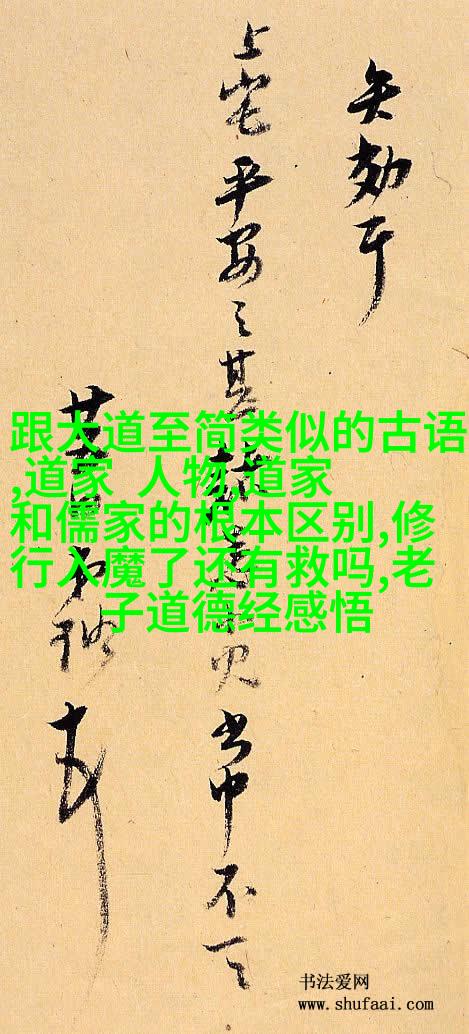 上宅平安之甚書中不一
跟大道至简类似的古语
,道家 人物,道家
和儒家的根本区别,修
行入魔了还有救吗,老
子道德经感悟
书法爱网
www.shufaai.com